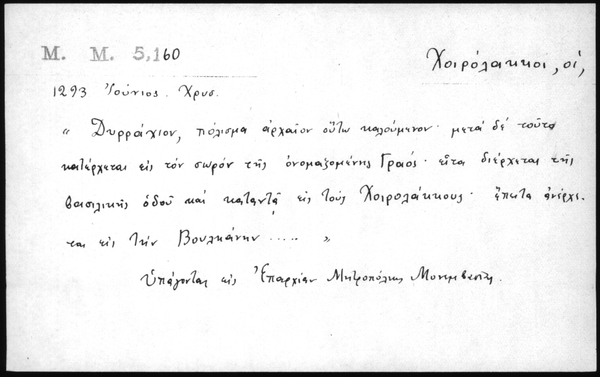 M. M. 5,160
Χοιρόλακκοι, οἱ,
1293 Ἰούνιος. Χρυσ.
" Δυρράχιον, πόλισμα ἀρχαῖον οὕτω καλούμενον· μετά δέ τοῦτο
κατέρχεται εἰς τόν σωρόν τῆς ὀνομαζομένης Γραός· εἶτα διέρχεται τῆς
βασιλικῆς ὁδοῦ καί καταντᾷ εἰς τούς Χοιρολάκκους· ἔπειτα ἀνέρχε-
ται εἰς τήν Βουλκάνην ..... "
Ὑπάγονται εἰς Ἐπαρχίαν Μητροπόλεως Μονεμβασίας